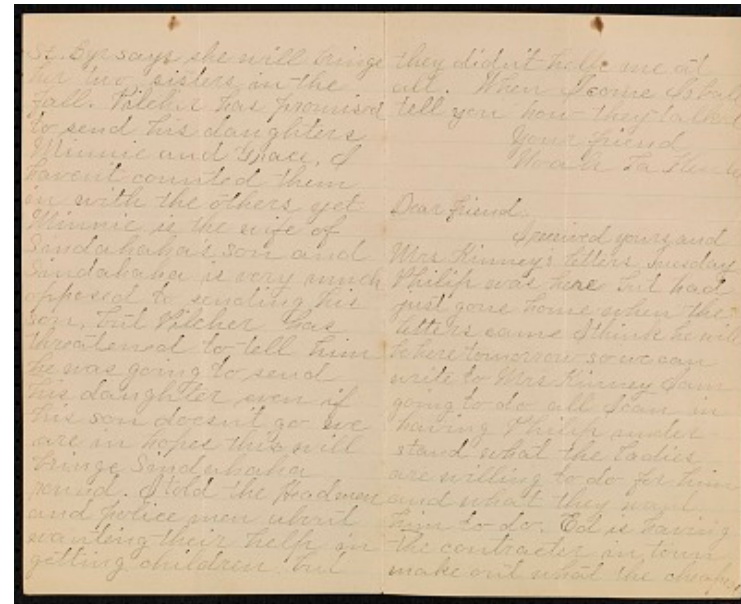 St. Cyr says she will bringe
her two sisters in the
fall. Pilcher has promised
to send his daughters
Minnie and Grace. I
havent counted them
in with the others yet
Minnie is the wife of
Sindahaha's son and
Sindahaha is very much
opposed to sending his
son, but Pilcher has
threatened to tell him
he was going to send
his daughter even if
his son doesn't go we
are in hopes this will
bringe Sindahaha
round. I told the Headmen
and police men about
wanting their help in
getting children but
they didn't help me at
all. When I come I shall
tell you how they talked
Your friend
Noah La
Dear friend.
I received yours and
Mrs Kinney's letters Tuesday
Philip was here but had
just gone home when the
letters came I think he will
be here tomorrow so we can
write to Mrs Kinney I am
going to do all I can in
having Philip under
stand what the ladies
are willing to do for him
and what they want
him to do. Ed is having
the contracter in town
make out what the cheapest